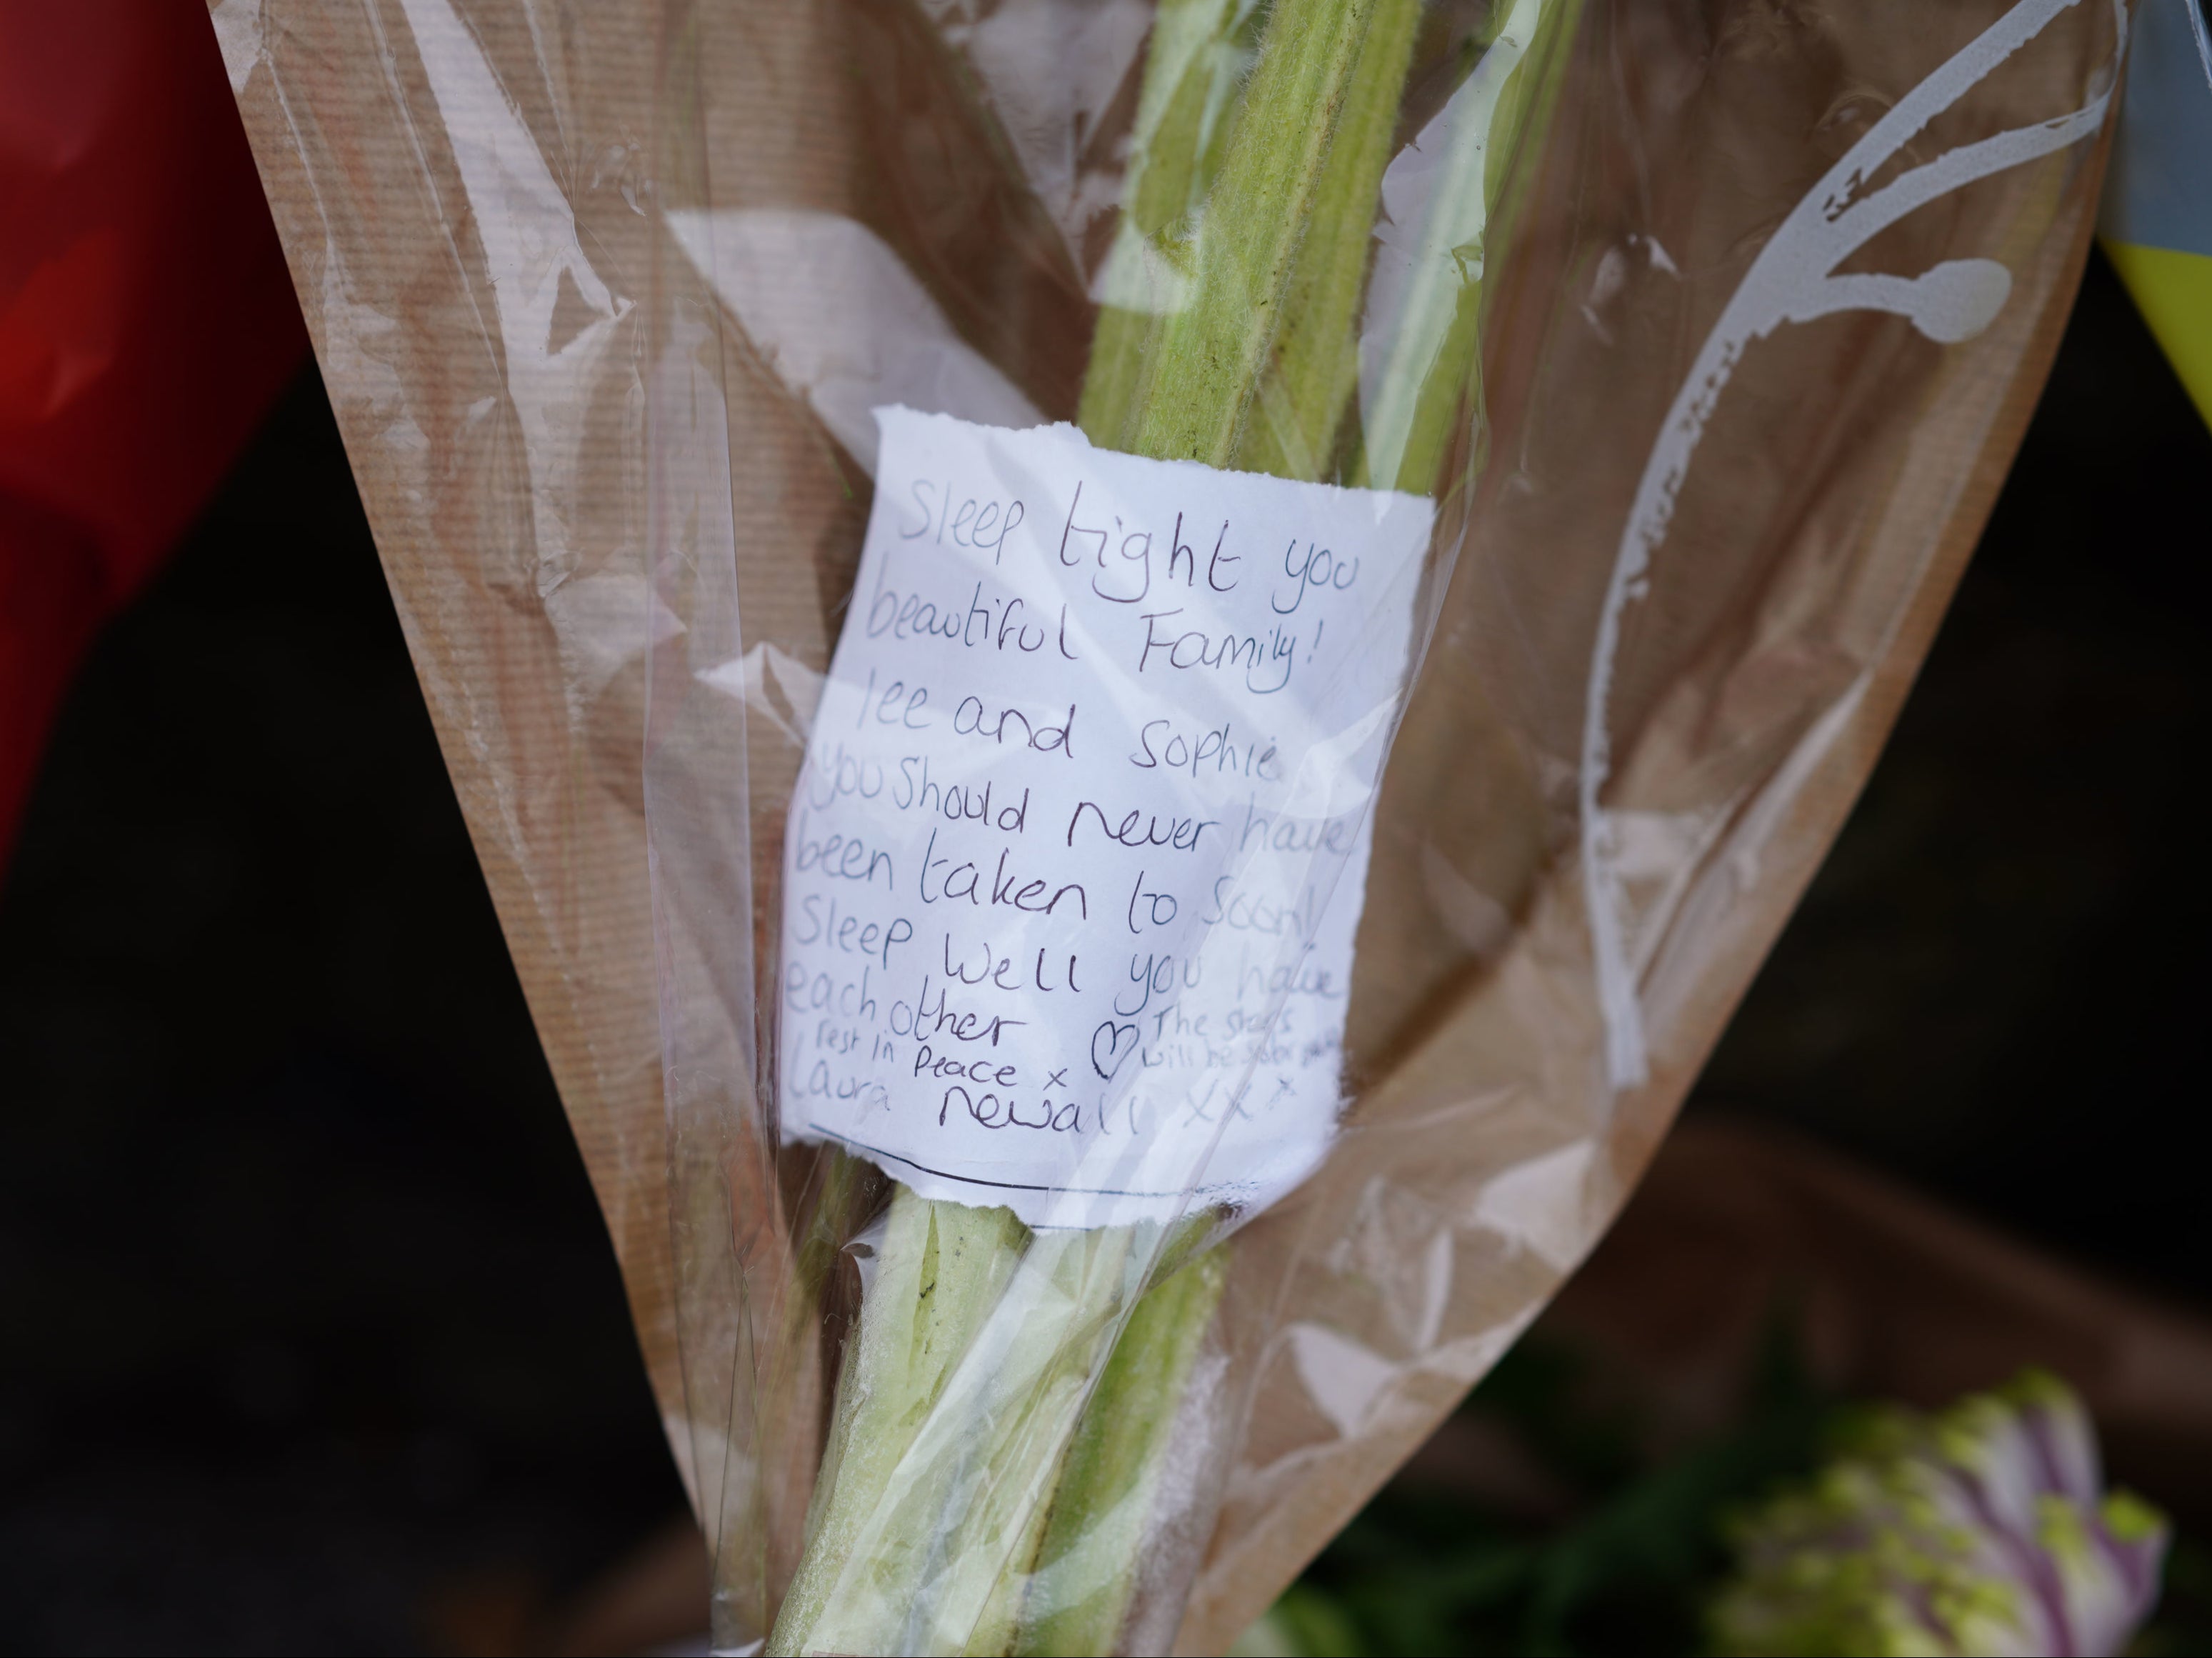 Sleep tight you
beautiful Family!
lee and Sophie
you Should never have
been taken to Soon!
Sleep Well you have
each other
rest in Peace x
♡ The stars
will be
Laura newall xx x